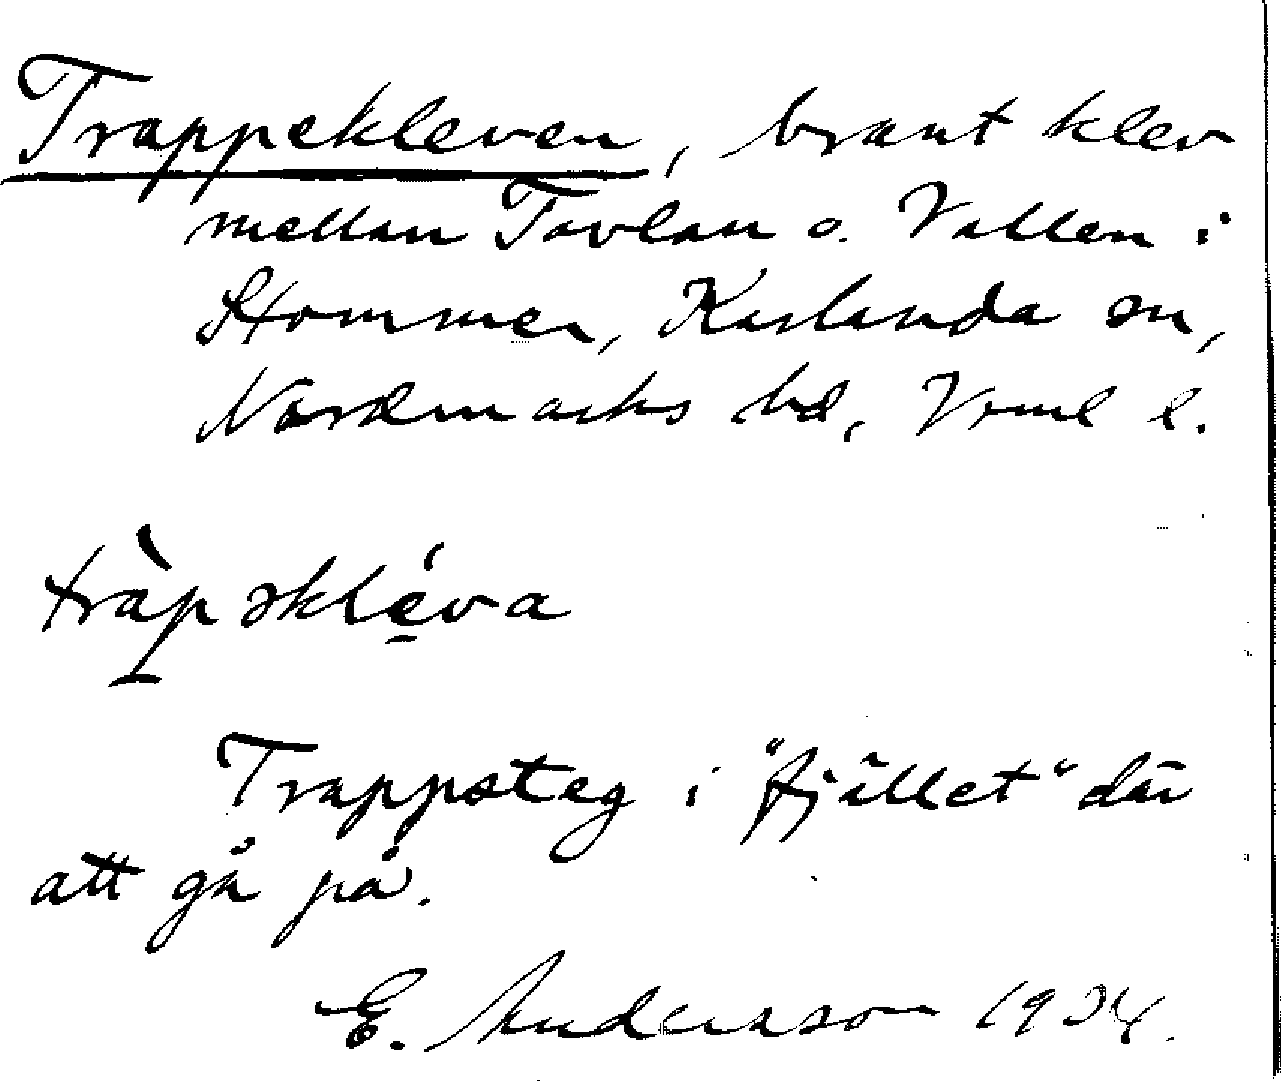 Trappekleven, brant klev
mellan Tavlan o. Vallen i
Stommen, Karlanda sn,
Nordmarks hd, Vrml l.
tràpəkléva
Trappsteg i "fjället" där
att gå på.
E. Andersson 1934.